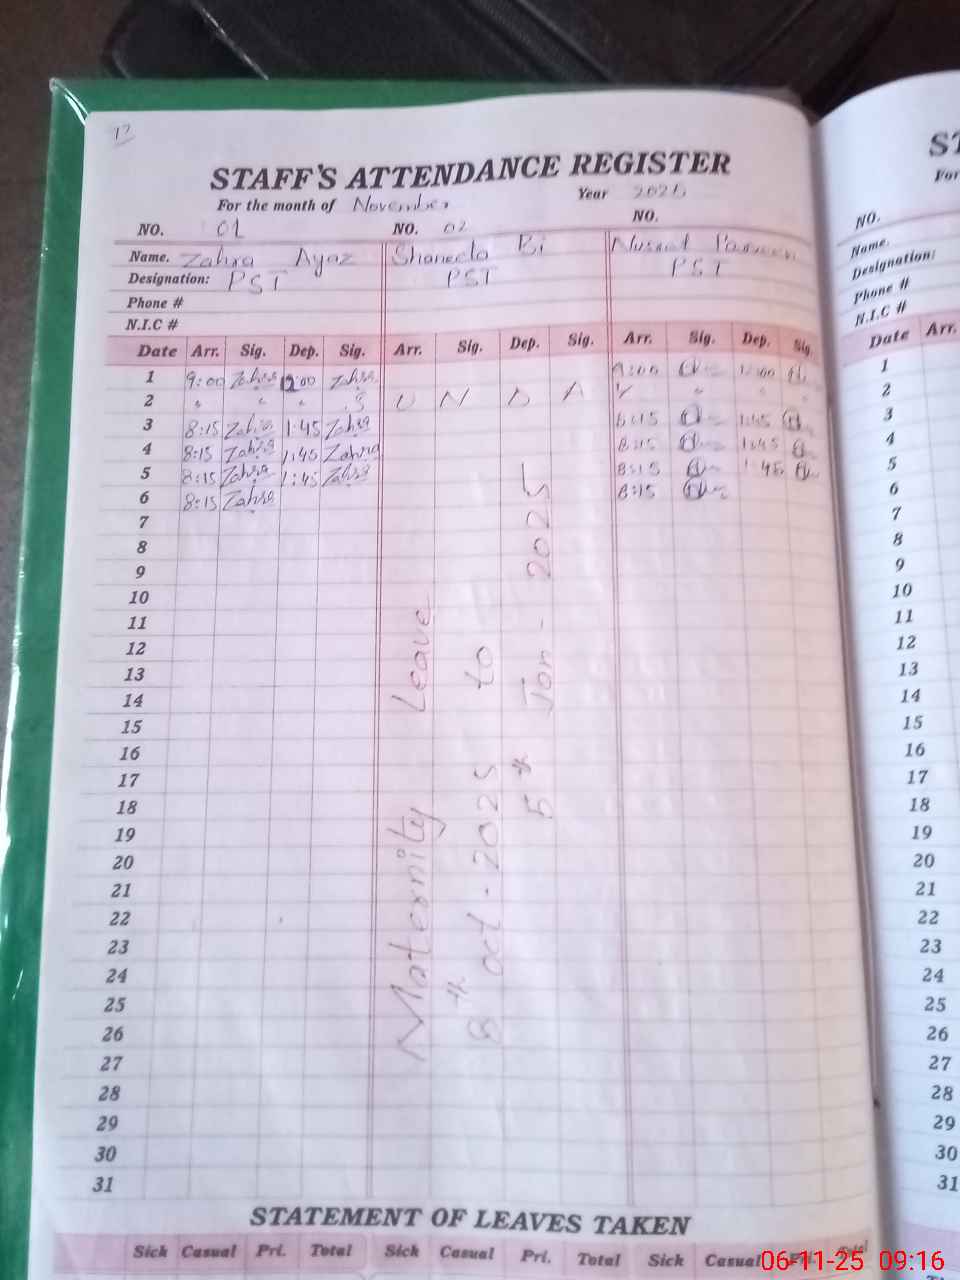 17
STAFF'S ATTENDANCE REGISTER
For the month of November Year 2025
NO. 01 NO. 02 NO.
Name. Zahra Ayaz Shaneela Bi Nussrat Parveen
Designation: PST PST PST
Phone #
N.I.C #
Date Arr. Sig. Dep. Sig. Arr. Sig. Dep. Sig. Arr. Sig. Dep. Sig.
1 9:00 Zahra 12:00 Zahra 9:00
2 S U N D A Y
3 8:15 Zahra 1:45 Zahra 8:15 1:45
4 8:15 Zahra 1:45 Zahra 8:15 1:45
5 8:15 Zahra 1:45 Zahra 8:15 1:45
6 8:15 Zahra 8:15
7
8
9
10
11
12
13
14
15
16
17
18
19
20
21
22
23
24
25
26
27
28
29
30
31
Maternity Leave
8th oct - 2025 to
5th Jan - 2025
STATEMENT OF LEAVES TAKEN
Sick Casual Pri. Total Sick Casual Pri. Total Sick Casual Pri. Total
ST
For
NO.
Name.
Designation:
Phone #
N.I.C #
Date Arr.
1
2
3
4
5
6
7
8
9
10
11
12
13
14
15
16
17
18
19
20
21
22
23
24
25
26
27
28
29
30
31
06-11-25 09:16